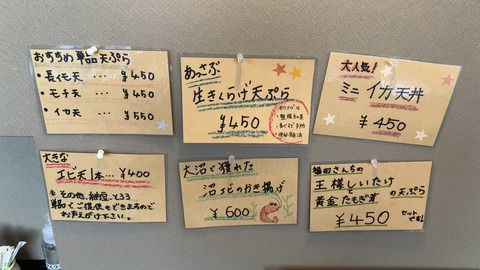 おすすめ単品天ぷら
・長イモ天 … ¥450
・モチ天 … ¥450
・イカ天 … ¥550
あっさぶ
生きくらげ天ぷら
¥450
大人気!
ミニイカ天丼
¥450
大きな
エビ天1本… ¥400
※その他、納豆、とろろ
単品でご提供もできますので
お声がけ下さい。
大沼で獲れた
沼エビのかき揚げ
¥600
福田さんちの
王様しいたけ
黄金たもぎ茸
の天ぷら
¥450
セットです!